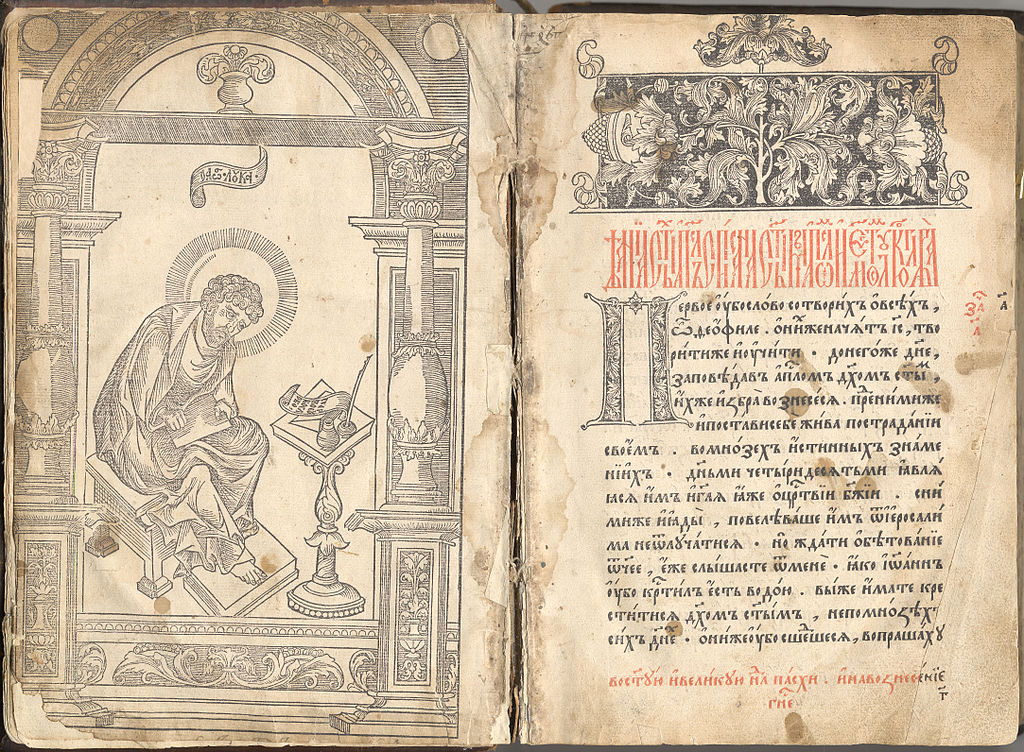 ЛꙊКА
Первое ᲂу҆бо слово сотвори́хъ ѡ҆ всѣ́хъ,
ѽ ѳео́филе . ѡ҆ ни́хже начатъ і҆с҃, тво
ри́ти же и҆ ᲂу҆чи́ти · до него́же дн҃е,
заповѣ́давъ а҆пⷭ҇ломъ дх҃омъ ст҃ы́м ,
и҆́хже и҆ꙁбра̀ воꙁнесе́сѧ . пред ни́миже
и҆ поста́ви себе жи́ва по страда́нїи
свое́мъ . во мно́ꙁехъ и҆́стинныхъ зна́ме
нїихъ . дн҃ьми четы́ридесѧтьми ꙗ҆влѧ́
ꙗсѧ и҆̀мъ и҆ гл҃ѧ ꙗ҆́же ѡ҆ црⷭ҇твїи бж҃їи . с ни́
миже и҆ ꙗ҆ды̀ , повелѣва́ше и҆̀мъ ѿ і҆еросали́
ма не ѿлꙋча́тисѧ . но жда́ти ѡ҆бѣтова́нїе
ѿч҃ее , є҆́же слы́шасте ѿ менѐ · ꙗ҆́ко і҆ѡ҆а́ннъ
ᲂу҆́бо крⷭ҇ти́лъ є҆́сть водо́ю . вы́ же и҆́мате кре
сти́тисѧ дх҃омъ ст҃ы́мъ , не по мно́ꙁѣхъ
си́хъ дн҃е · ѻ҆ни́же ᲂу҆бо сше́шесѧ, вопраша́хꙋ
во ст҃ꙋ́ю и҆ вели́кꙋю нлⷣѧ па́схи . и҆ на воꙁнесе́нїе
гнⷭ҇е